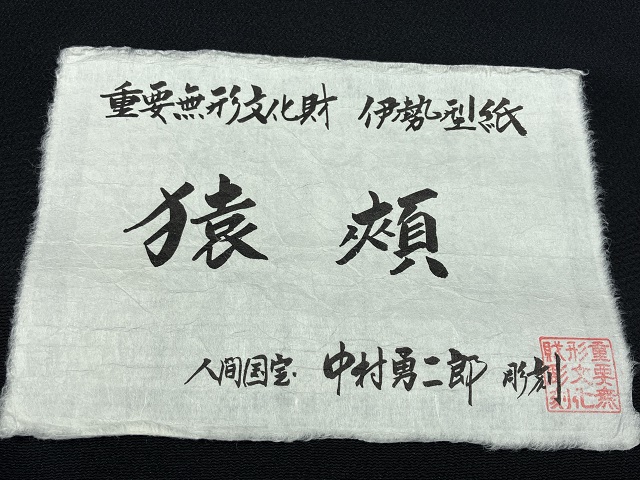 重要無形文化財 伊勢型紙
猿頰
人間国宝 中村勇二郎 彫刻
重要無
形文化
財彫刻